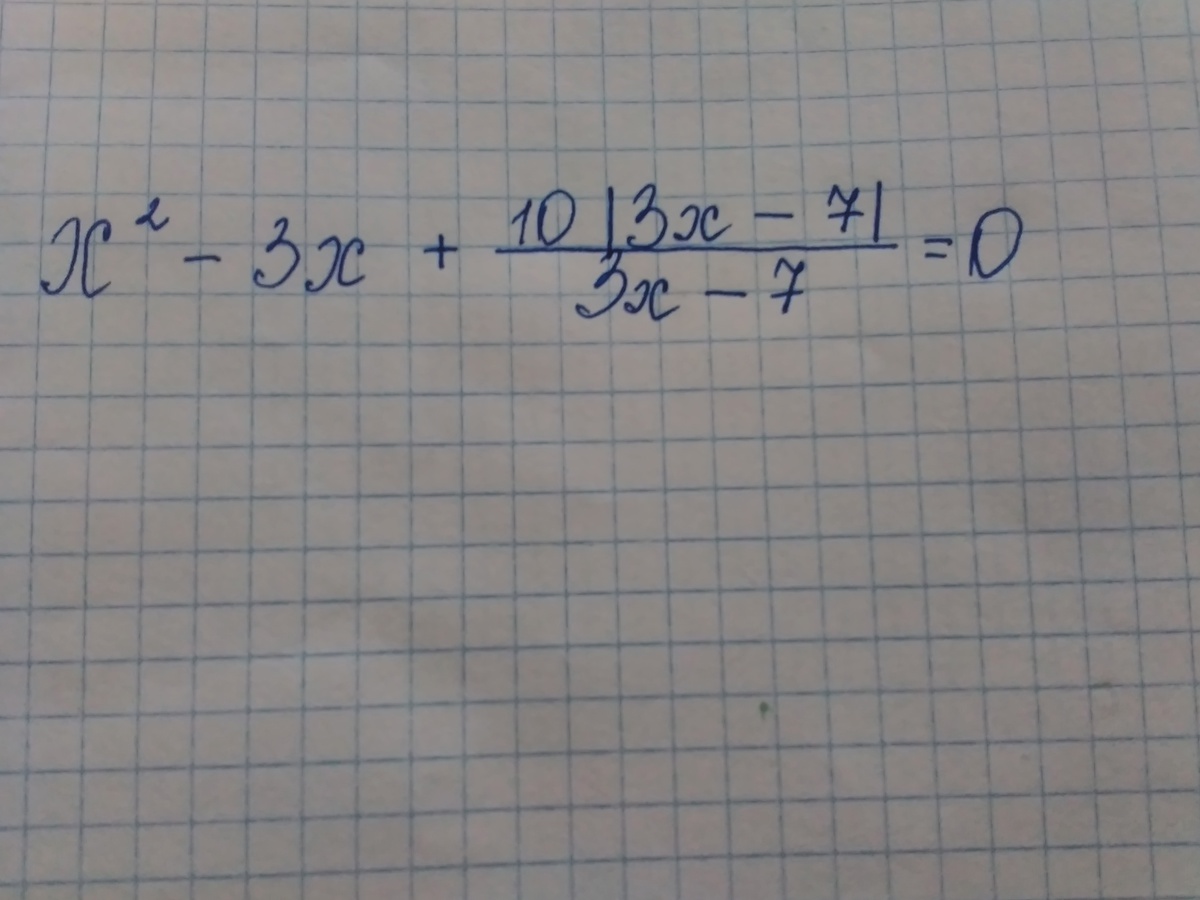 x² - 3x + \frac{10 |3x - 7|}{3x - 7} = 0